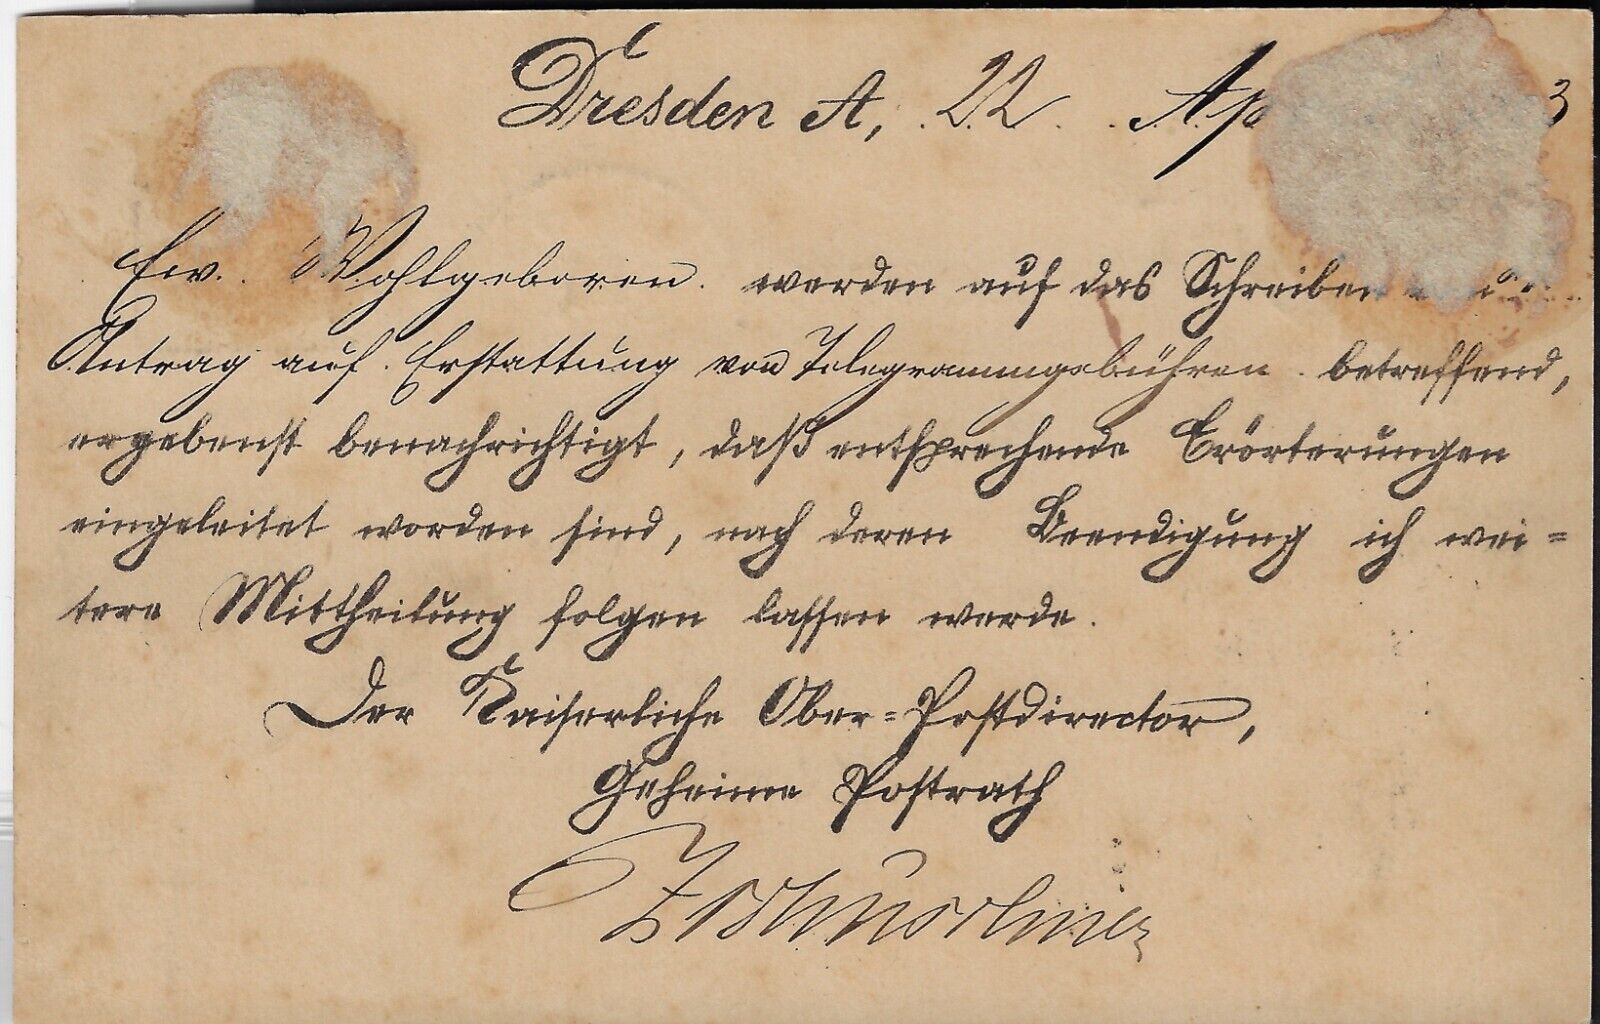 Dresden A, 22. Ap 3
Ew. Wohlgeboren. werden auf das Schreiben
Antrag auf Erstattung von Telegrammgebühren betreffend,
ergebenst benachrichtigt, daß entsprechende Erörterungen
eingeleitet worden sind, nach deren Beendigung ich wei=
tere Mittheilung folgen lassen werde.
Der Kaiserliche Ober=Postdirector,
Geheime Postrath